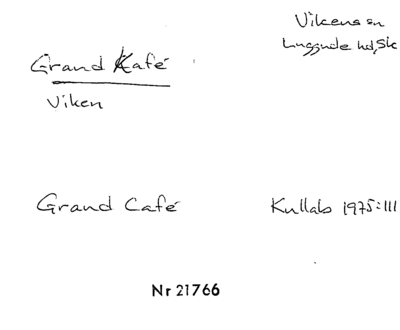 Vikens sn
Luggude hd, Sk
Grand Café
Viken
Grand Café
Kullabs 1975:111
Nr 21766